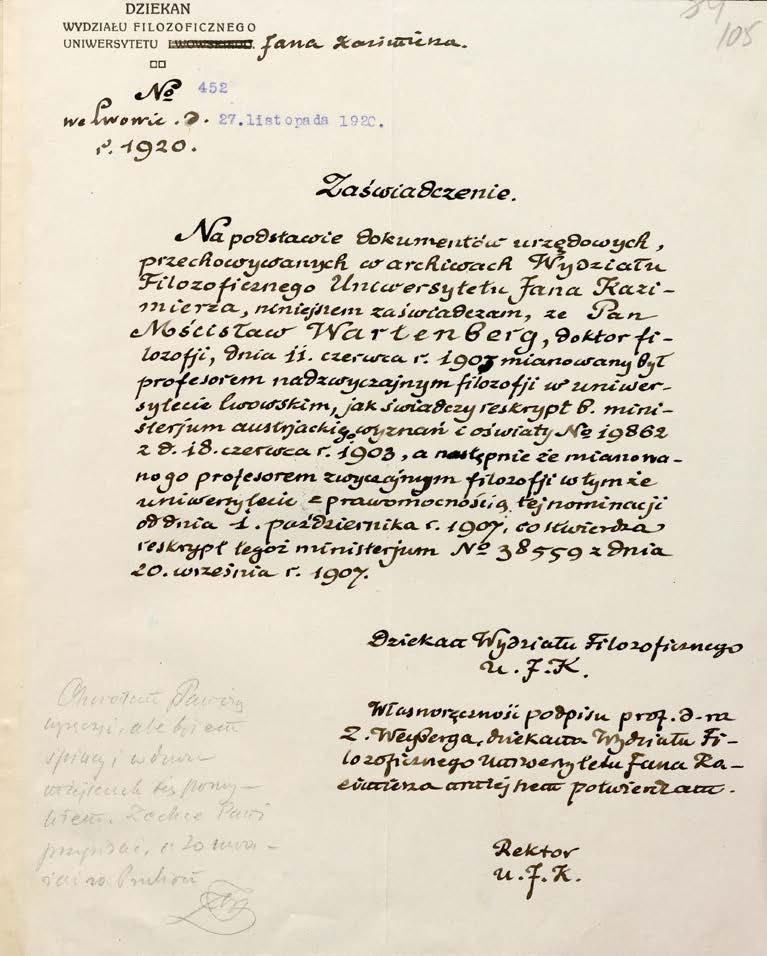 DZIEKAN
WYDZIAŁU FILOZOFICZNEGO
UNIWERSYTETU LWOWSKIEGO. Jana Kazimierza.
84
105
№ 452
we Lwowie. d. 27.listopada 1920.
r. 1920.
Zaświadczenie.
Na podstawie dokumentów urzędowych,
przechowywanych w archiwach Wydziału
Filozoficznego Uniwersytetu Jana Kazi-
mierza, niniejszem zaświadczam, ze Pan
Mścisław Wartenberg, doktor fi-
lozofji, dnia 11. czerwca r. 1903 mianowany był
profesorem nadzwyczajnym filozofji w uniwer-
sytecie lwowskim, jak świadczy reskrypt b. mini-
sterjum austrjackiego wyznań i oświaty № 19862
z d. 18. czerwca r. 1903, a następnie że mianowa-
no go profesorem zwyczajnym filozofji w tym że
uniwersytecie z prawomocnością tej nominacji
od dnia 1. października r. 1907, co stwierdza
reskrypt tegoż ministerjum № 38559 z dnia
20. września r. 1907.
Dziekan Wydziału Filozoficznego
U. J. K.
Własnoręczność podpisu prof. d-ra
Z. Weyberga, dziekana Wydziału Fi-
lozoficznego Uniwersytetu Jana Ka-
zimierza potwierdzam.
Rektor
U. J. K.
Pani